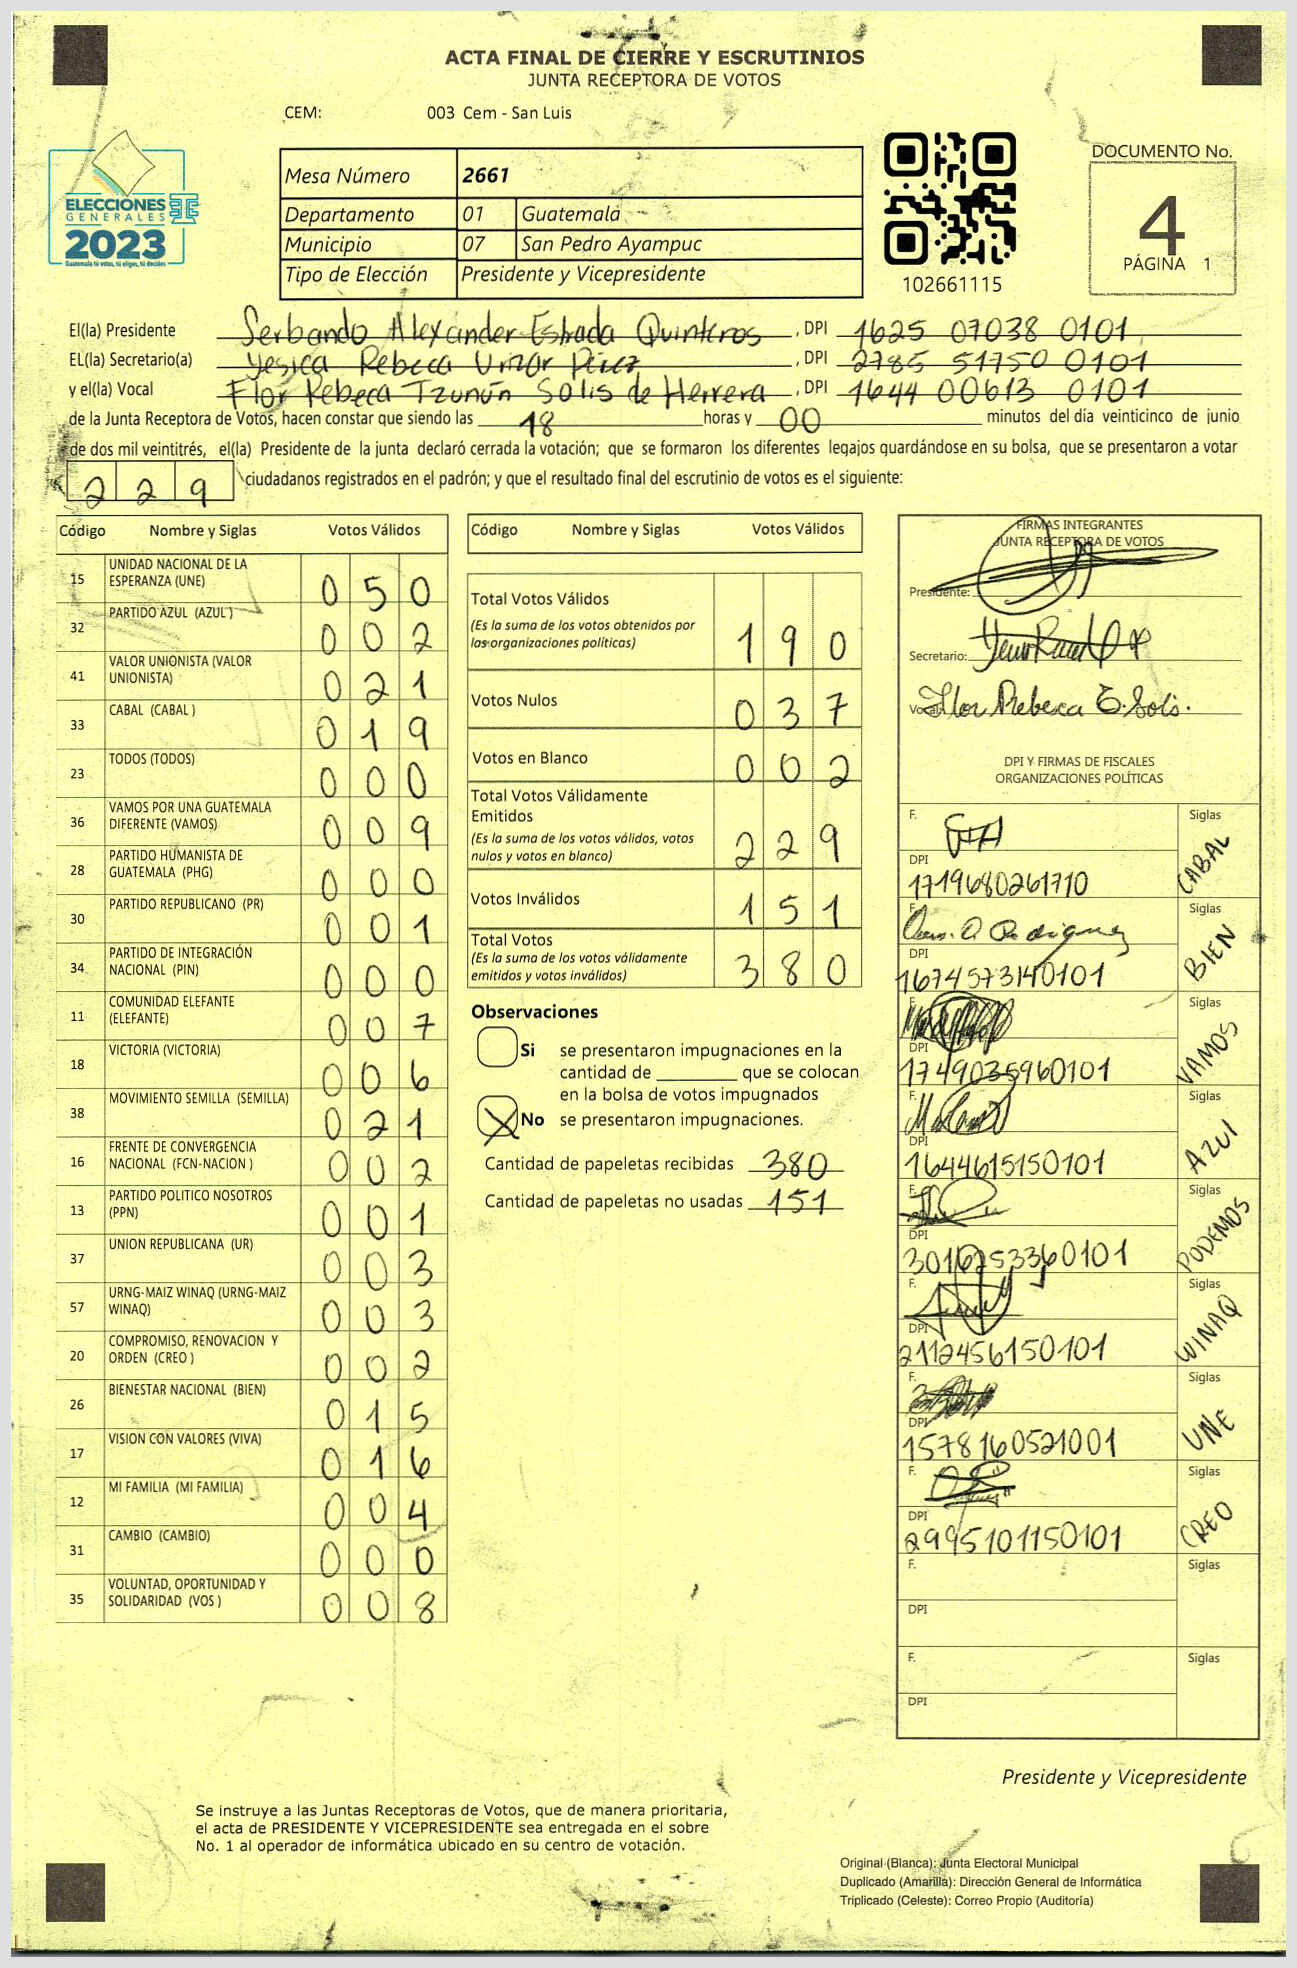 ACTA FINAL DE CIERRE Y ESCRUTINIOS
JUNTA RECEPTORA DE VOTOS
CEM: 003 Cem - San Luis
ELECCIONES
GENERALES
2023
Guatemala tú votas, tú eliges, tú decides
Mesa Número 2661
Departamento 01 Guatemala
Municipio 07 San Pedro Ayampuc
Tipo de Elección Presidente y Vicepresidente
102661115
DOCUMENTO No.
4
PÁGINA 1
El(la) Presidente Serbando Alexander Estrada Quinteros, DPI 1625 07038 0101
EL(la) Secretario(a) Yesica Rebeca Umar Pérez, DPI 2785 51750 0101
y el(la) Vocal Flor Rebeca Tzunún Solis de Herrera, DPI 1644 00613 0101
de la Junta Receptora de Votos, hacen constar que siendo las 18 horas y 00 minutos del día veinticinco de junio
de dos mil veintitrés, el(la) Presidente de la junta declaró cerrada la votación; que se formaron los diferentes legajos quardándose en su bolsa, que se presentaron a votar
229 ciudadanos registrados en el padrón; y que el resultado final del escrutinio de votos es el siguiente:
Código Nombre y Siglas Votos Válidos
15 UNIDAD NACIONAL DE LA ESPERANZA (UNE) 050
32 PARTIDO AZUL (AZUL ) 002
41 VALOR UNIONISTA (VALOR UNIONISTA) 021
33 CABAL (CABAL ) 019
23 TODOS (TODOS) 000
36 VAMOS POR UNA GUATEMALA DIFERENTE (VAMOS) 009
28 PARTIDO HUMANISTA DE GUATEMALA (PHG) 000
30 PARTIDO REPUBLICANO (PR) 001
34 PARTIDO DE INTEGRACIÓN NACIONAL (PIN) 000
11 COMUNIDAD ELEFANTE (ELEFANTE) 007
18 VICTORIA (VICTORIA) 006
38 MOVIMIENTO SEMILLA (SEMILLA) 021
16 FRENTE DE CONVERGENCIA NACIONAL (FCN-NACION ) 002
13 PARTIDO POLITICO NOSOTROS (PPN) 001
37 UNION REPUBLICANA (UR) 003
57 URNG-MAIZ WINAQ (URNG-MAIZ WINAQ) 003
20 COMPROMISO, RENOVACION Y ORDEN (CREO ) 002
26 BIENESTAR NACIONAL (BIEN) 015
17 VISION CON VALORES (VIVA) 016
12 MI FAMILIA (MI FAMILIA) 004
31 CAMBIO (CAMBIO) 000
35 VOLUNTAD, OPORTUNIDAD Y SOLIDARIDAD (VOS ) 008
Código Nombre y Siglas Votos Válidos
Total Votos Válidos 190
(Es la suma de los votos obtenidos por
las organizaciones políticas)
Votos Nulos 037
Votos en Blanco 002
Total Votos Válidamente
Emitidos 229
(Es la suma de los votos válidos, votos
nulos y votos en blanco)
Votos Inválidos 151
Total Votos 380
(Es la suma de los votos válidamente
emitidos y votos inválidos)
Observaciones
Si se presentaron impugnaciones en la
cantidad de ________ que se colocan
en la bolsa de votos impugnados
X No se presentaron impugnaciones.
Cantidad de papeletas recibidas 380
Cantidad de papeletas no usadas 151
FIRMAS INTEGRANTES
JUNTA RECEPTORA DE VOTOS
Presidente:
Secretario:
Vocal: Flor Rebeca T. Solis.
DPI Y FIRMAS DE FISCALES
ORGANIZACIONES POLÍTICAS
F. Siglas CABAL
DPI 1719680261710
F. Siglas BIEN
DPI 1674573140101
F. Siglas VAMOS
DPI 1749035960101
F. Siglas AZUL
DPI 1644615150101
F. Siglas PODEMOS
DPI 3016753360101
F. Siglas WINAQ
DPI 2112456150101
F. Siglas UNE
DPI 1578160521001
F. Siglas CREO
DPI 2995101150101
F. Siglas
DPI
F. Siglas
DPI
Presidente y Vicepresidente
Se instruye a las Juntas Receptoras de Votos, que de manera prioritaria,
el acta de PRESIDENTE Y VICEPRESIDENTE sea entregada en el sobre
No. 1 al operador de informática ubicado en su centro de votación.
Original (Blanca): Junta Electoral Municipal
Duplicado (Amarilla): Dirección General de Informática
Triplicado (Celeste): Correo Propio (Auditoría)